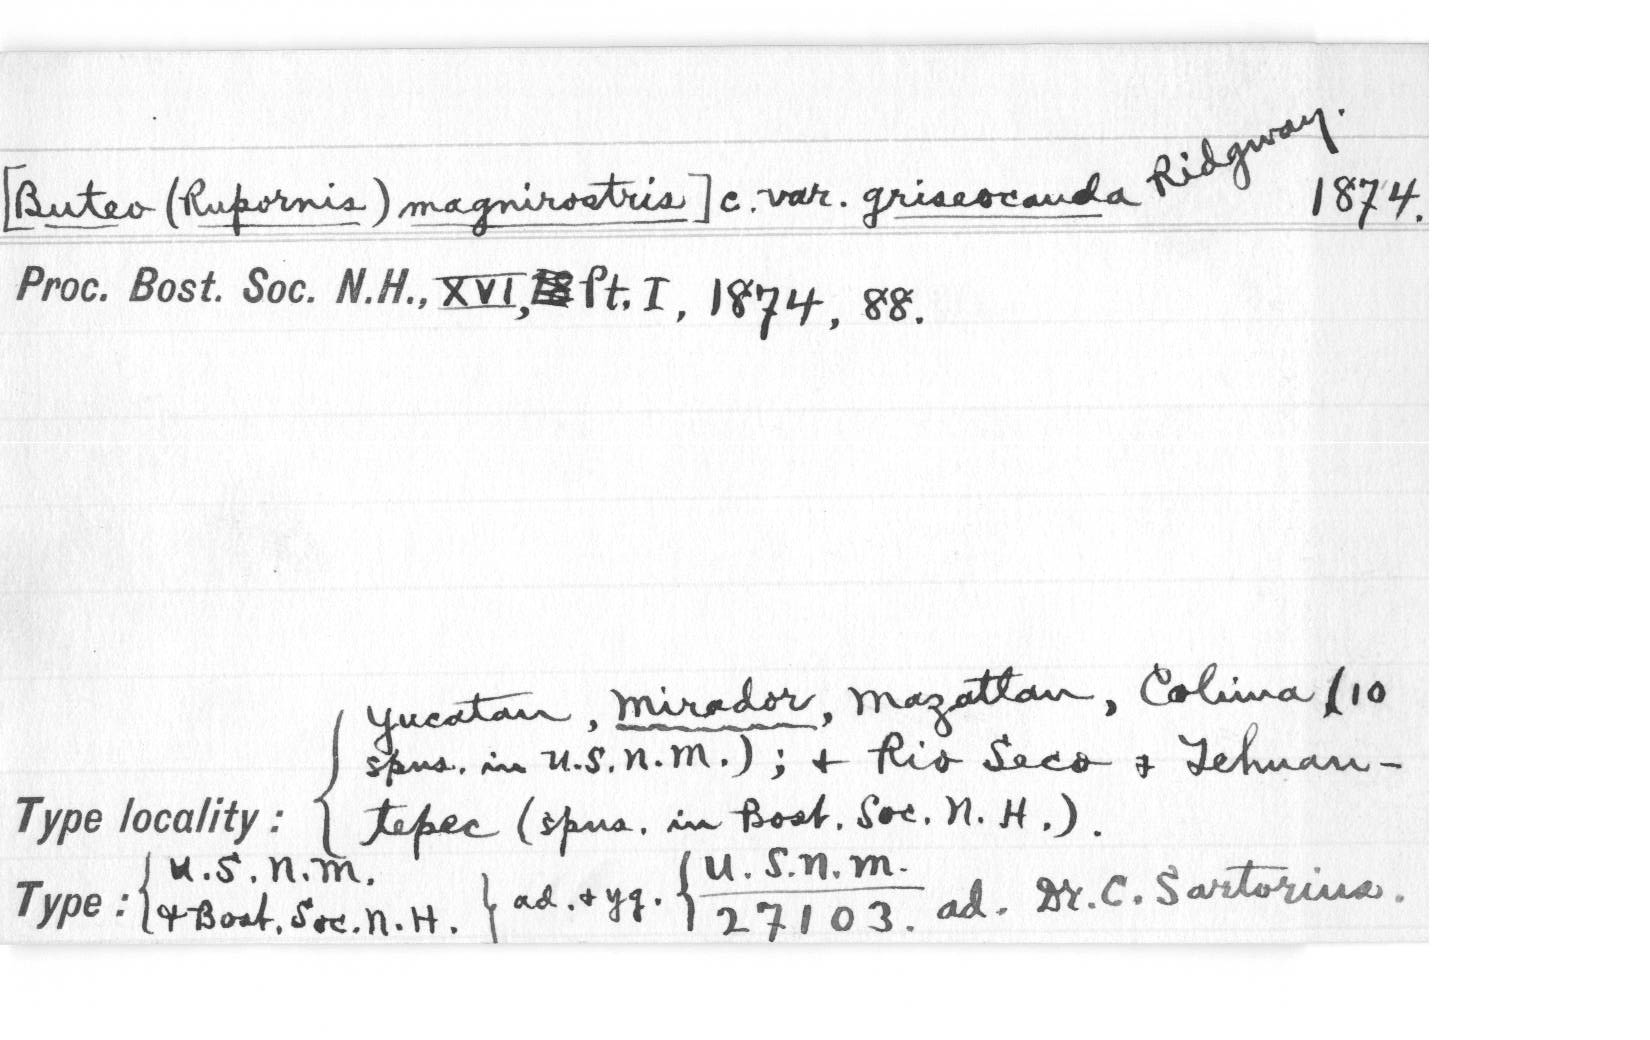 [Buteo (Rupornis) magnirostris] c. var. griseocauda Ridgway. 1874.
Proc. Bost. Soc. N.H., XVI, pt. I, 1874, 88.
Yucatan, Mirador, Mazatlan, Colima (10
spns. in U.S.N.M.); + Rio Seco + Tehuan-
Type locality: tepec (spns. in Bost. Soc. N. H.).
Type: { U.S.N.M. + Bost. Soc. N. H. } ad. + yg. { U.S.N.M. 27103. ad. Dr. C. Sartorius.